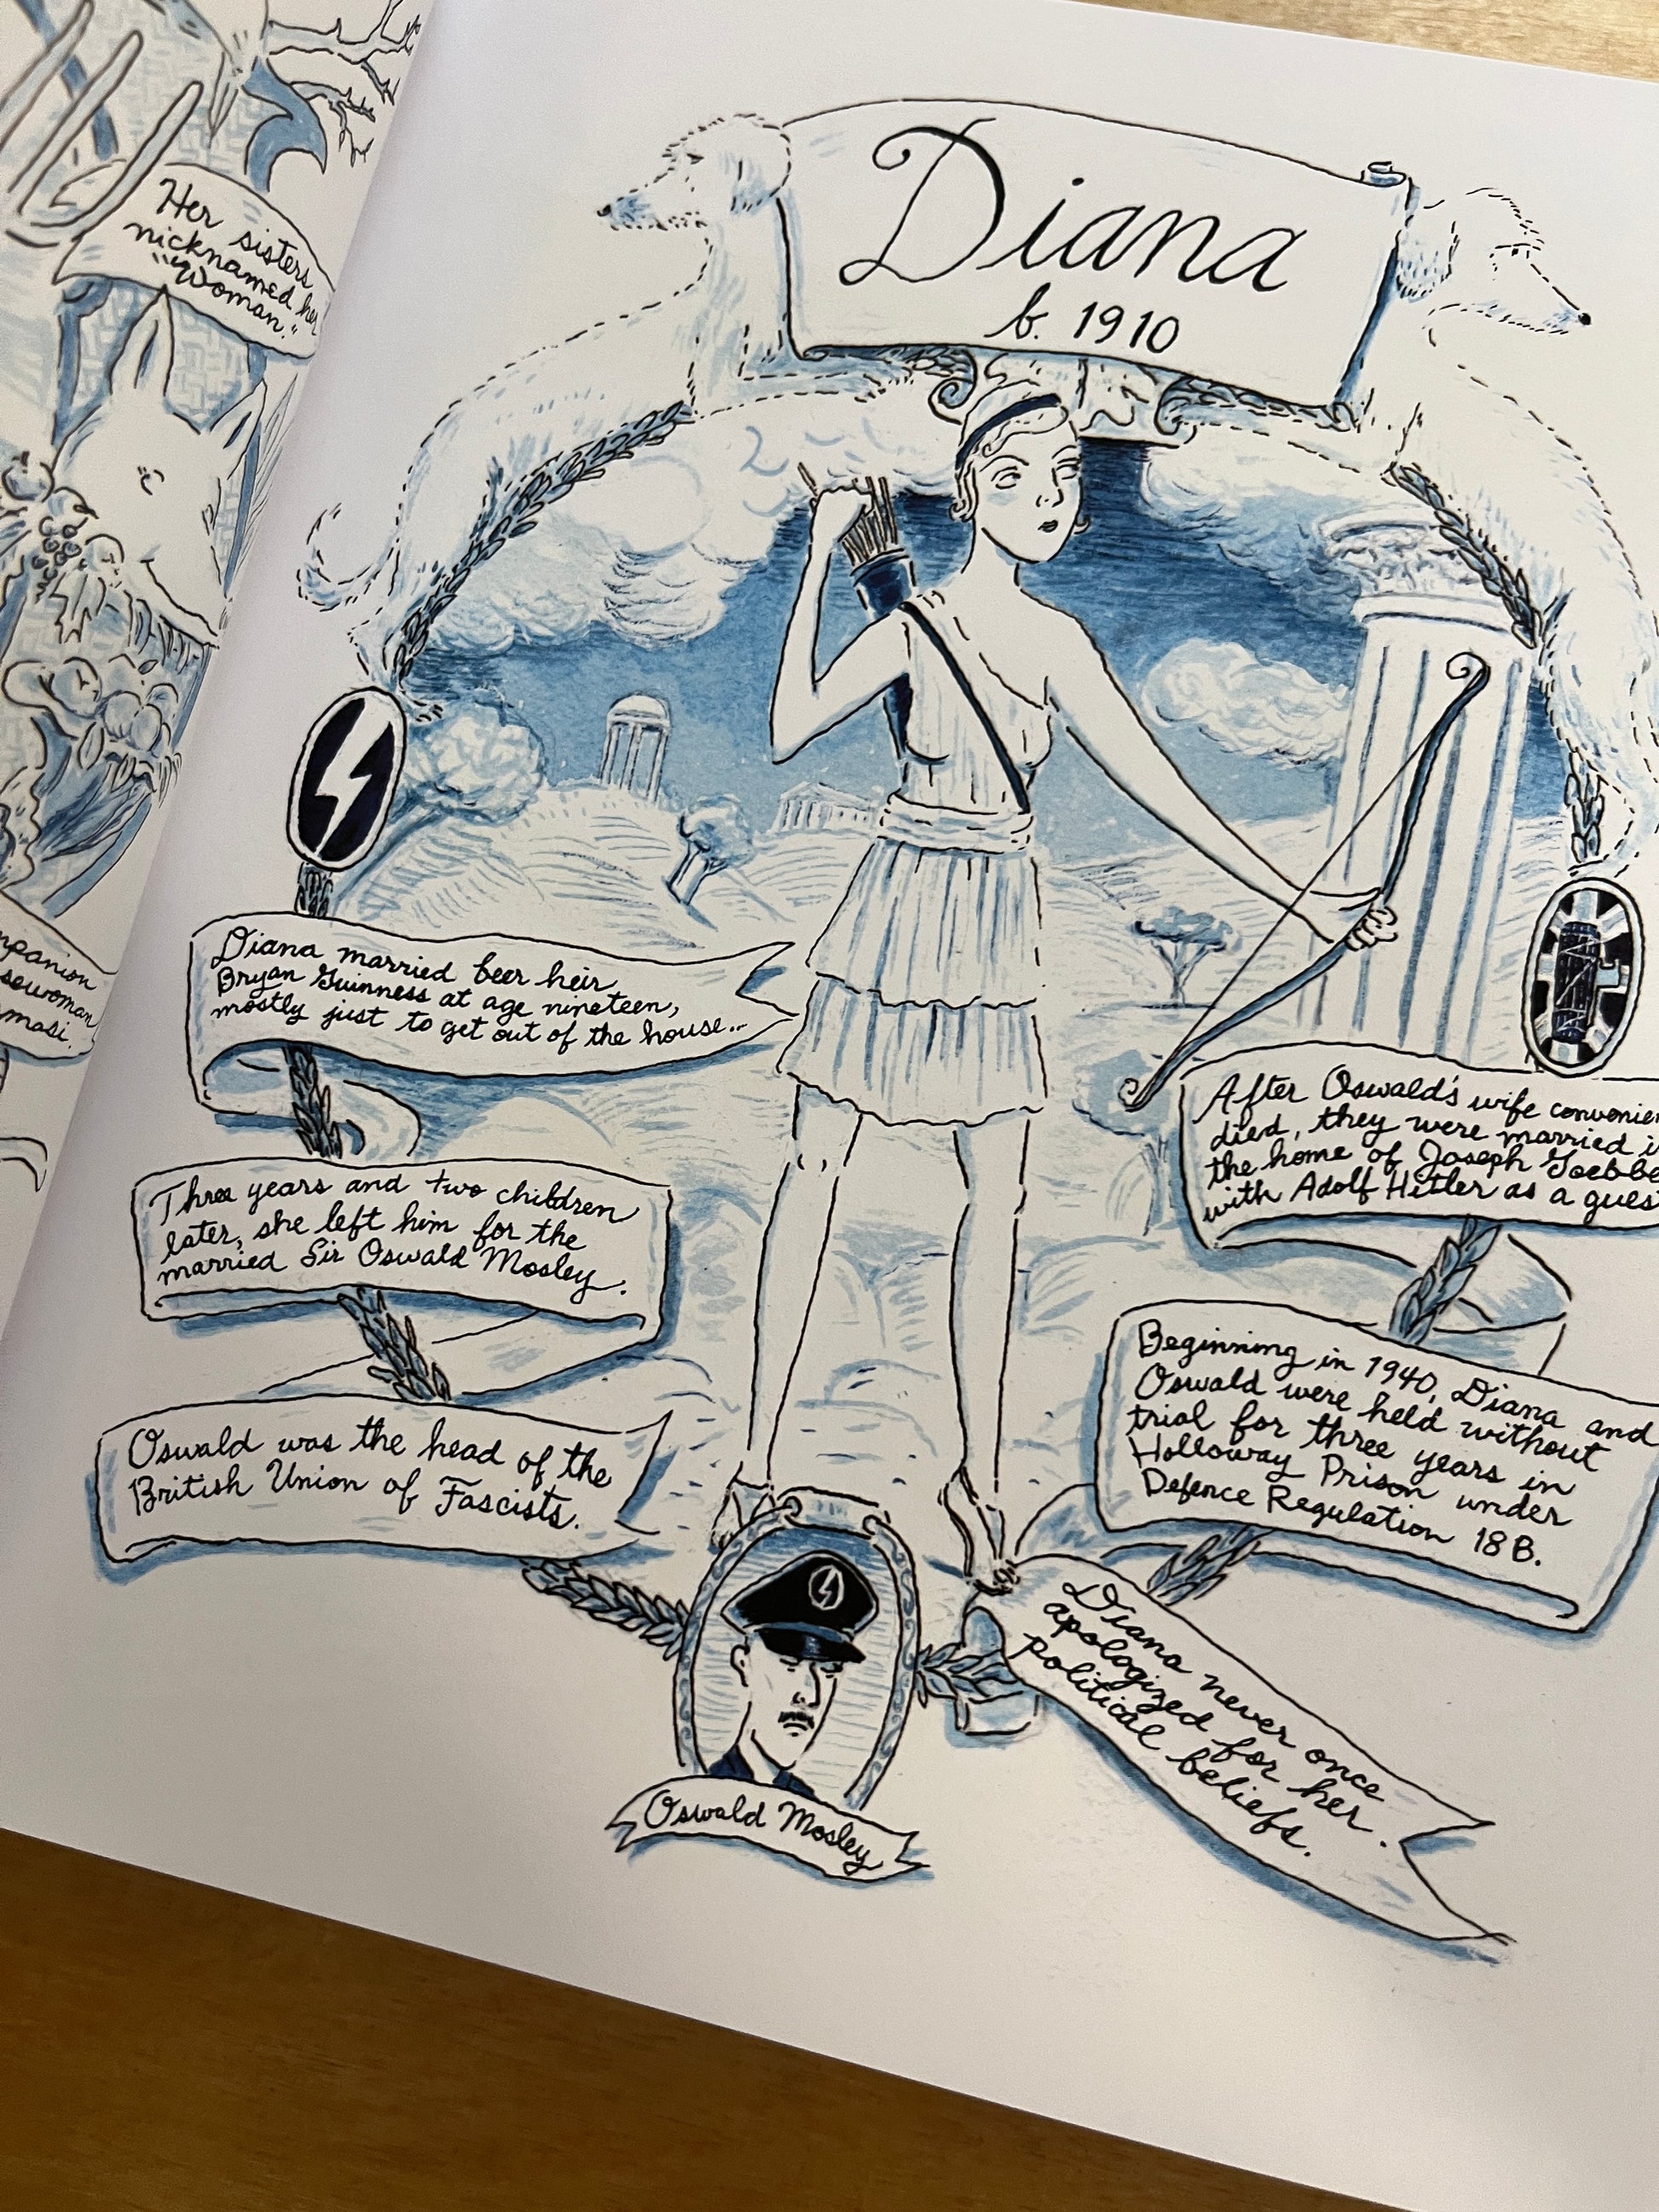 Her sisters
nicknamed her
"Woman."
Diana
b. 1910
Diana married beer heir
Bryan Guinness at age nineteen,
mostly just to get out of the house...
Three years and two children
later, she left him for the
married Sir Oswald Mosley.
Oswald was the head of the
British Union of Fascists.
Oswald Mosley
After Oswald's wife
died, they were married
the home of Joseph
with Adolf Hitler as a
Beginning in 1940, Diana and
Oswald were held without
trial for three years in
Holloway Prison under
Defence Regulation 18B.
Diana never once
apologized for her
political beliefs.